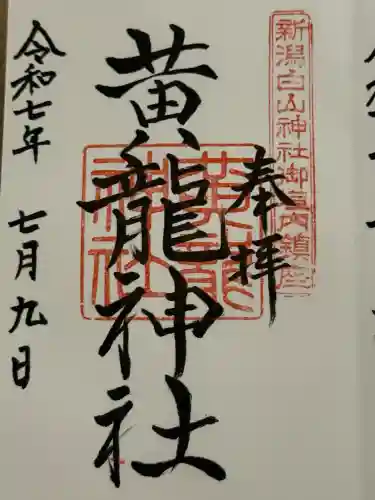 新潟白山神社御宮内鎮座
奉拝
黄龍神社
令和七年 七月九日